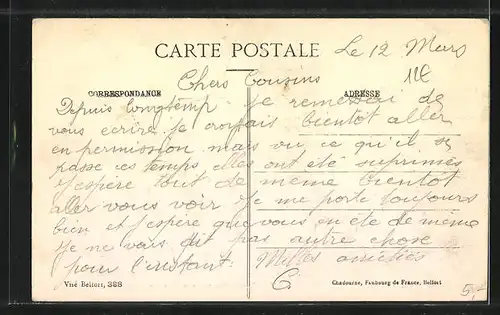 CARTE POSTALE
Le 12 Mars
CORRESPONDANCE
ADRESSE
Chers Cousins
Depuis longtemp je remettai de
vous ecrire je croyais bientôt aller
en permission mais vu ce qu'il se
passe ces temps elles ont été suprimés
J'espère tout de même bientôt
aller vous voir Je me porte toujours
bien et J'espère que vous en ete de même
Je ne vois dit pas autre chose
pour l'instant. Milles amitiés
C
Visé Belfort, 388
Chadouine, Faubourg de France, Belfort